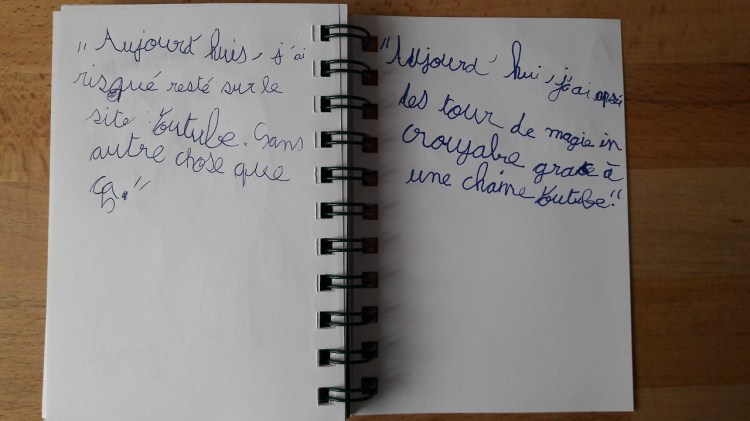 "Aujourd'huis, j'ai
risqué resté sur le
site Youtube. Sans
autre chose que
ça."
"Aujourd'hui, j'ai
des tour de magie in
croyabre grace à
une chaine Youtube."